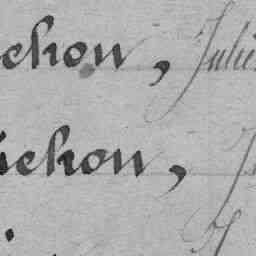 chon, Julie
ichon, J